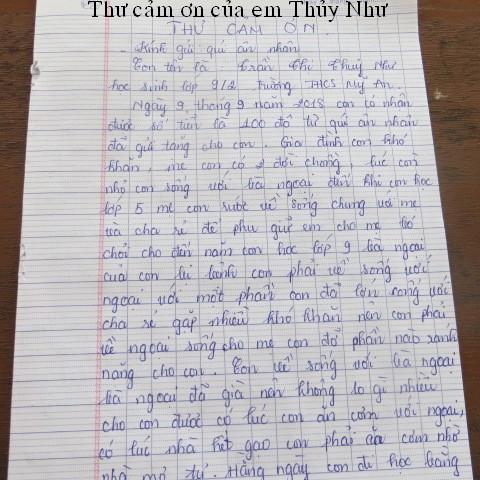 Thư cảm ơn của em Thủy Như
THƯ CẢM ƠN
- Kính gửi quí ân nhân
Con tên là : Trần Thị Thuỷ Như
học sinh lớp 9/2, Trường THCS Mỹ An.
Ngày 9, tháng 9 năm 2018 con có nhận
được số tiền là 100 đô từ quí ân nhân
đã gửi tặng cho con. Gia đình con khó
khăn, mẹ con có 2 đời chồng, lúc còn
nhỏ con sống với bà ngoại đến khi con học
lớp 5 mẹ con rước về sống chung với mẹ
và cha rẻ để phụ giúp em cho mẹ bó
chổi cho đến năm con học lớp 9 bà ngoại
của con bị bệnh con phải về sống với
ngoại với một phần con đã lớn sống với
cha rẻ gặp nhiều khó khăn nên con phải
về ngoại sống cho mẹ con đở phần nào gánh
nặng cho con. Con về sống với bà ngoại
bà ngoại đã già nên không lo gì nhiều
cho con được có lúc con ăn cơm với ngoại,
có lúc nhà hết gạo con phải ăn cơm nhờ
nhà mợ tư. Hằng ngày con đi học bằng